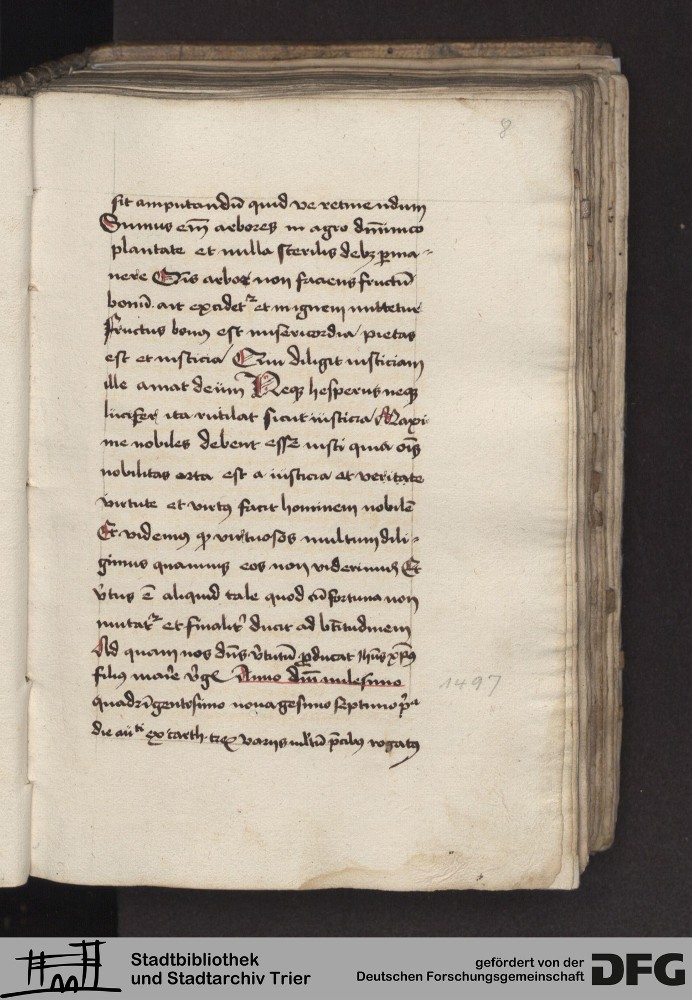 8
sit amputandū quid ve retinendum
Sumus em̄ arbores in agro dn̄ico
plantate et nulla sterilis debꝫ ꝑma-
nere Oīs arbor non faciens fructū
bonū ait excidetᷣ et in ignem mittetur
Fructus bonꝰ est misericordia pietas
est et iusticia Qui diligit iusticiam
ille amat deum Neqꝫ hesperus neqꝫ
lucifer ita rutilat sicut iusticia Maxi
me nobiles debent esse iusti quia oīs
nobilitas orta est a iusticia et veritate
virtute et virtꝰ facit hominem nobilē
Et videmꝰ ꝙ virtuosos multum dili-
gimus quamuis eos non viderimꝰ Et
v̄tus ē aliquid tale quod cū fortuna non
mutatᷣ et finalitᷣ ducit ad bt̄itudinem
Ad quam nos dn̄s v̄tutū ꝑducat Ihūs xp̄us
filiꝰ marie v̄gīs Anno dn̄i milesimo
quadrīgentesimo nonagesimo septimo pᷓ
die
variis precibꝰ rogatꝰ
1497
Stadtbibliothek
und Stadtarchiv Trier
gefördert von der
Deutschen Forschungsgemeinschaft
DFG